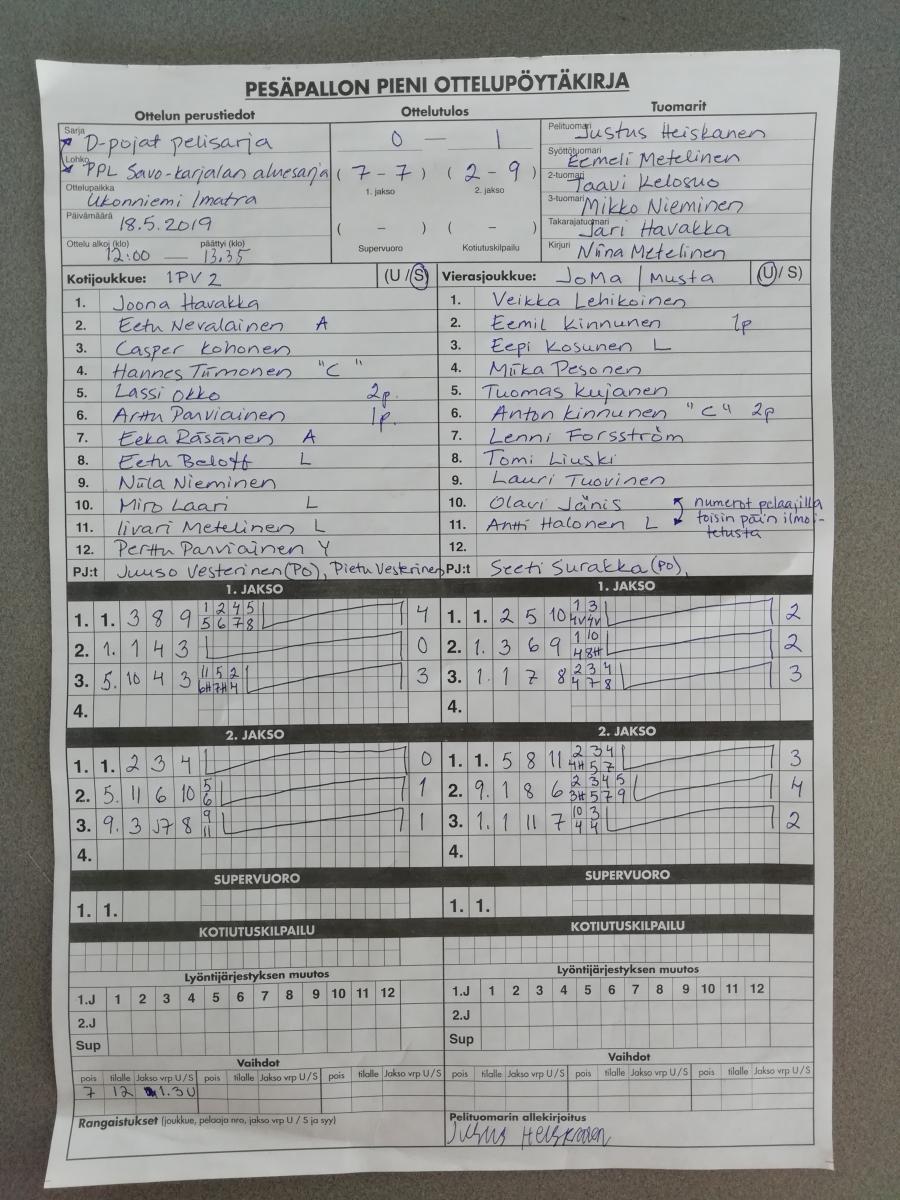 PESÄPALLON PIENI OTTELUPÖYTÄKIRJA
Ottelun perustiedot Ottelutulos Tuomarit
Sarja D-pojat pelisarja
Lohko PPL Savo-karjalan aluesarja
Ottelupaikka Ukonniemi Imatra
Päivämäärä 18.5.2019
Ottelu alkoi (klo) 12:00 — päättyi (klo) 13.35
0 — 1
( 7 - 7 ) ( 2 - 9 )
1. jakso 2. jakso
( - ) ( - )
Supervuoro Kotiutuskilpailu
Pelituomari Justus Heiskanen
Syöttötuomari Eemeli Metelinen
2-tuomari Taavi Kelosuo
3-tuomari Mikko Nieminen
Takarajatuomari Jari Havakka
Kirjuri Niina Metelinen
Kotijoukkue: IPV 2 (U / S)
1. Joona Havakka
2. Eetu Nevalainen A
3. Casper Kohonen
4. Hannes Timonen "C"
5. Lassi Okko 2p.
6. Arttu Parviainen 1p.
7. Eeka Räsänen A
8. Eetu Beloff L
9. Niila Nieminen
10. Miro Laari L
11. Iivari Metelinen L
12. Perttu Parviainen Y
PJ:t Juuso Vesterinen (PO), Pietu Vesterinen
Vierasjoukkue: JoMa / musta (U / S)
1. Veikka Lehikoinen
2. Eemil Kinnunen 1p
3. Eepi Kosunen L
4. Miika Pesonen
5. Tuomas Kujanen
6. Anton Kinnunen "C" 2p
7. Lenni Forsström
8. Tomi Liuski
9. Lauri Tuovinen
10. Olavi Jänis
11. Antti Halonen L
numerot pelaajilla
toisin päin ilmoi-
tetusta
12.
PJ:t Seeti Surakka (PO),
1. JAKSO
1. 1. 3 8 9 1 2 4 5 4
5 6 7 8
2. 1. 1 4 3 0
3. 5. 10 4 3 11 5 2 3
6H 7H 4
4.
2. JAKSO
1. 1. 2 3 4 0
2. 5. 11 6 10 5 1
6
3. 9. 3 J7 8 9 1
11
4.
SUPERVUORO
1. 1.
KOTIUTUSKILPAILU
1. JAKSO
1. 1. 2 5 10 1 3 2
4V 4V
2. 1. 3 6 9 1 10 2
4 8H
3. 1. 1 7 8 2 3 4 3
4 7 8
4.
2. JAKSO
1. 1. 5 8 11 2 3 4 3
4H 5 7
2. 9. 1 8 6 2 3 4 5 4
3H 5 7 9
3. 1. 1 11 7 10 3 2
4 4
4.
SUPERVUORO
1. 1.
KOTIUTUSKILPAILU
Lyöntijärjestyksen muutos
1.J 1 2 3 4 5 6 7 8 9 10 11 12
2.J
Sup
Vaihdot
pois tilalle Jakso vrp U / S pois tilalle Jakso vrp U / S pois tilalle Jakso vrp U / S
7 12 1.3U
Rangaistukset (joukkue, pelaaja nro, jakso vrp U / S ja syy)
Lyöntijärjestyksen muutos
1.J 1 2 3 4 5 6 7 8 9 10 11 12
2.J
Sup
Vaihdot
pois tilalle Jakso vrp U / S pois tilalle Jakso vrp U / S pois tilalle Jakso vrp U / S
Pelituomarin allekirjoitus
Justus Heiskanen